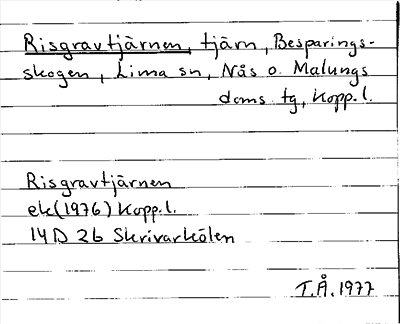 Risgravtjärnen, tjärn, Besparings-
skogen, Lima sn, Nås o. Malungs
doms. tg, Kopp. l.
Risgravtjärnen
ek(1976) Kopp. l.
14D 2b Skrivarkölen
T.Å. 1977